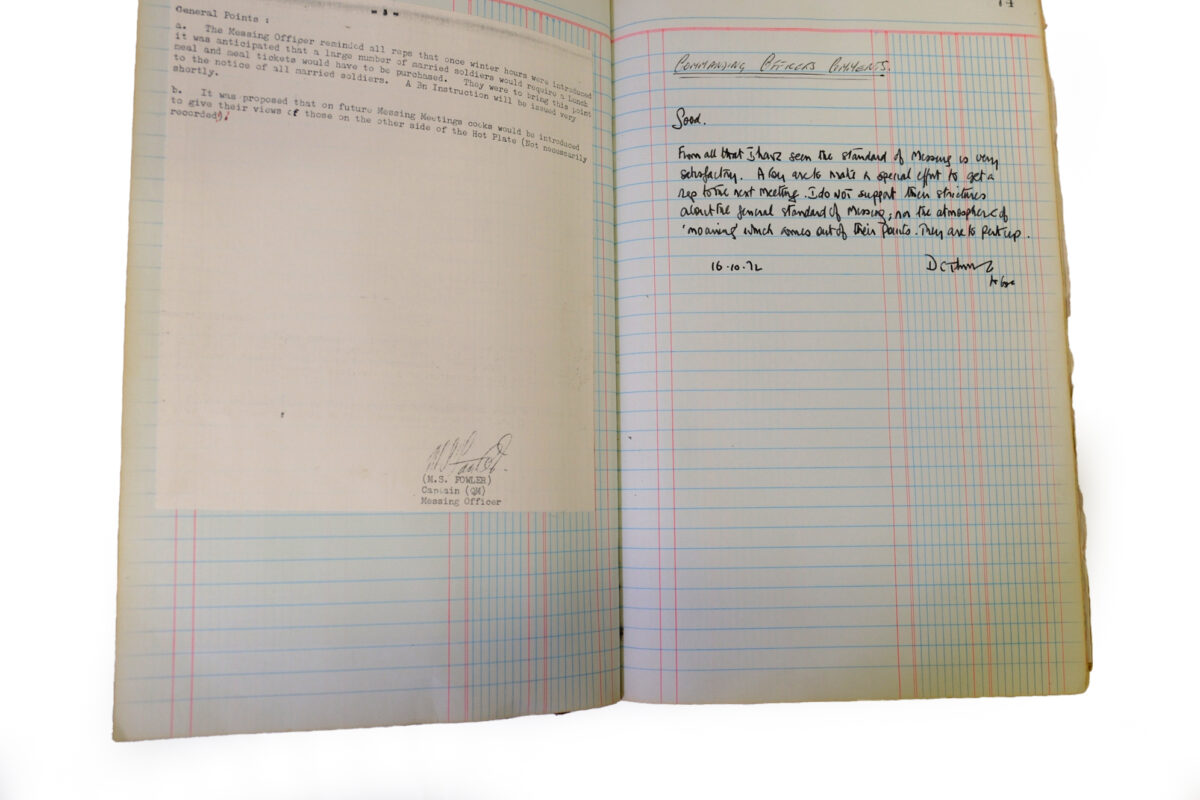 - 3 -
General Points :
a. The Messing Officer reminded all reps that once winter hours were introduced
it was anticipated that a large number of married soldiers would require a lunch
meal and meal tickets would have to be purchased. They were to bring this point
to the notice of all married soldiers. A Bn Instruction will be issued very
shortly.
b. It was proposed that on future Messing Meetings cooks would be introduced
to give their views of those on the other side of the Hot Plate (Not necessarily
recorded)!
(M.S. FOWLER)
Captain (QM)
Messing Officer
74
COMMANDING OFFICERS COMMENTS.
Good.
From all that I have seen the standard of Messing is very
satisfactory. A Coy are to make a special effort to get a
rep to the next meeting. I do not support their strictures
about the general standard of Messing, nor the atmosphere of
'moaning' which comes out of their points. They are to perk up.
16.10.72